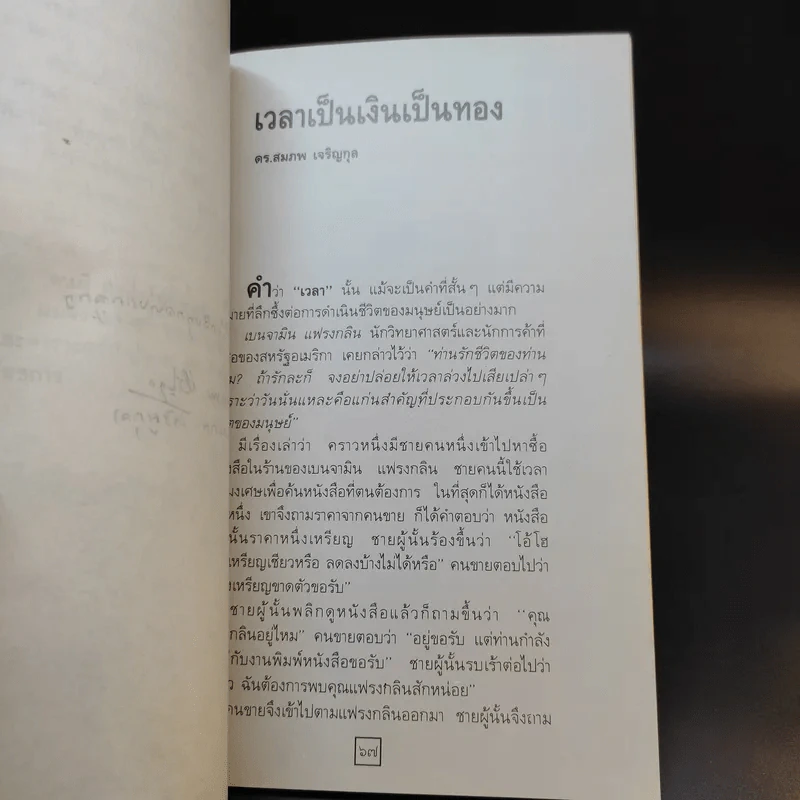 เวลาเป็นเงินเป็นทอง
ดร.สมภพ เจริญกุล
คำว่า “เวลา” นั้น แม้จะเป็นคำที่สั้นๆ แต่มีความ
มายที่ลึกซึ้งต่อการดำเนินชีวิตของมนุษย์เป็นอย่างมาก
เบนจามิน แฟรงกลิน นักวิทยาศาสตร์และนักการค้าที่
อของสหรัฐอเมริกา เคยกล่าวไว้ว่า “ท่านรักชีวิตของท่าน
ม? ถ้ารักละก็ จงอย่าปล่อยให้เวลาล่วงไปเสียเปล่าๆ
ราะว่าวันนั่นแหละคือแก่นสำคัญที่ประกอบกันขึ้นเป็น
ตของมนุษย์”
มีเรื่องเล่าว่า คราวหนึ่งมีชายคนหนึ่งเข้าไปหาซื้อ
งสือในร้านของเบนจามิน แฟรงกลิน ชายคนนี้ใช้เวลา
มงเศษเพื่อค้นหนังสือที่ตนต้องการ ในที่สุดก็ได้หนังสือ
หนึ่ง เขาจึงถามราคาจากคนขาย ก็ได้คำตอบว่า หนังสือ
นั้นราคาหนึ่งเหรียญ ชายผู้นั้นร้องขึ้นว่า “โอ้โฮ
เหรียญเชียวหรือ ลดลงบ้างไม่ได้หรือ” คนขายตอบไปว่า
งเหรียญขาดตัวขอรับ”
ชายผู้นั้นพลิกดูหนังสือแล้วก็ถามขึ้นว่า “คุณ
กลินอยู่ไหม” คนขายตอบว่า “อยู่ขอรับ แต่ท่านกำลัง
กับงานพิมพ์หนังสือขอรับ” ชายผู้นั้นรบเร้าต่อไปว่า
ว ฉันต้องการพบคุณแฟรงกลินสักหน่อย”
คนขายจึงเข้าไปตามแฟรงกลินออกมา ชายผู้นั้นจึงถาม
๖๗